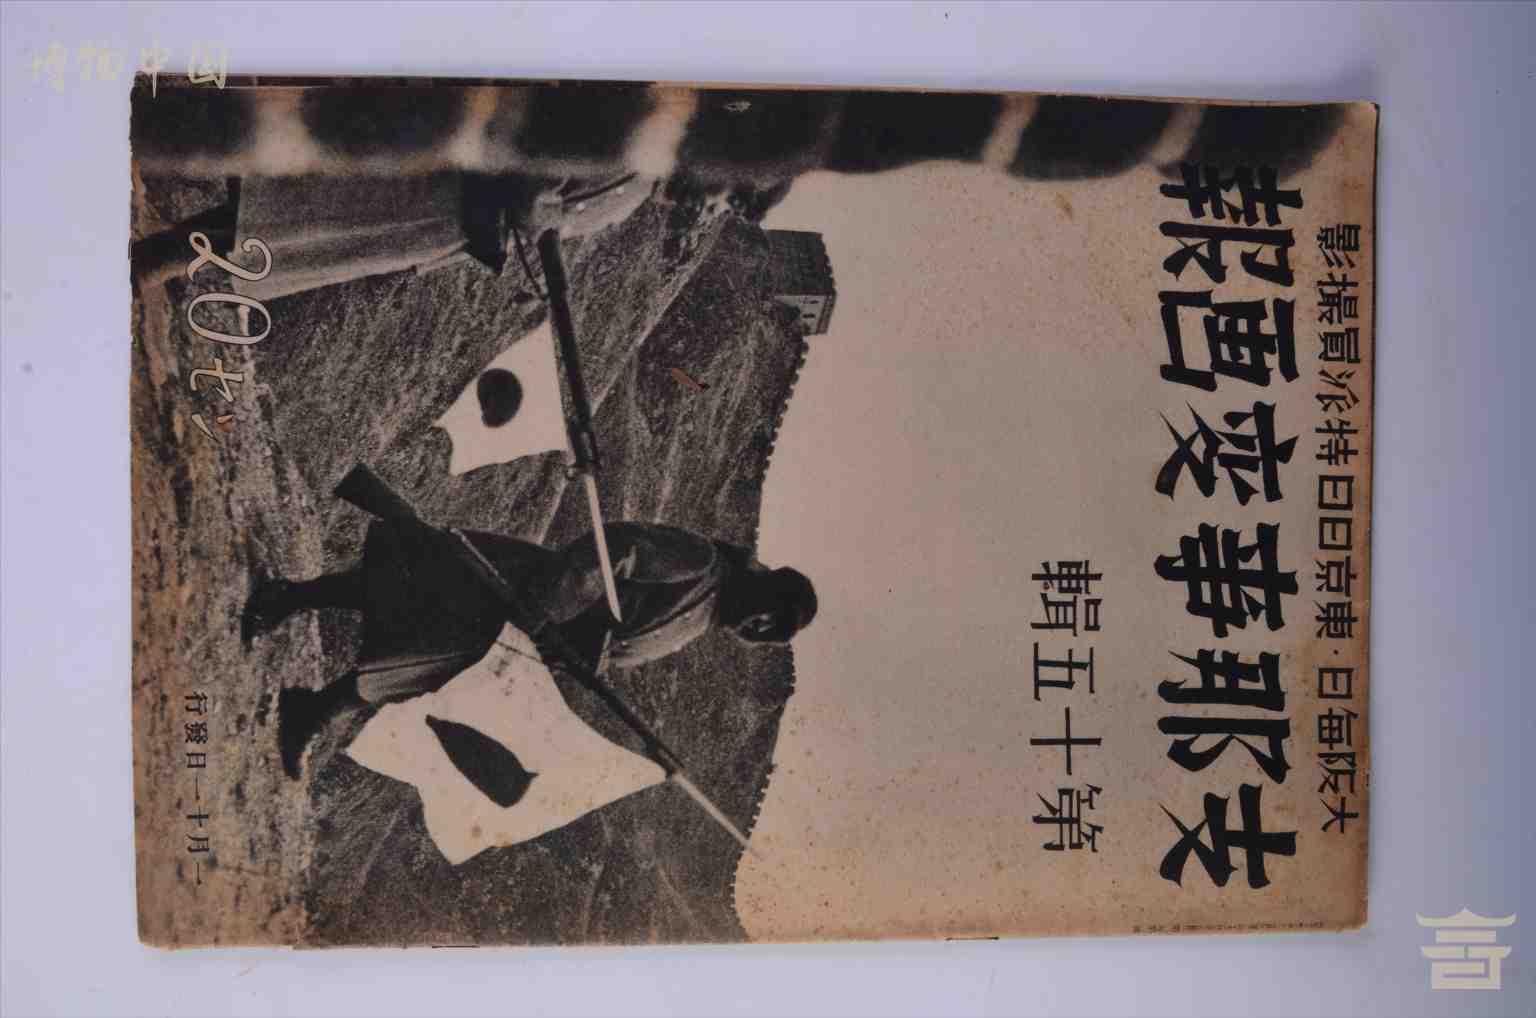 大阪毎日・東京日日特派員撮影
支那事變畫報
第十五輯
20セン
一月十一日發行
博物中国